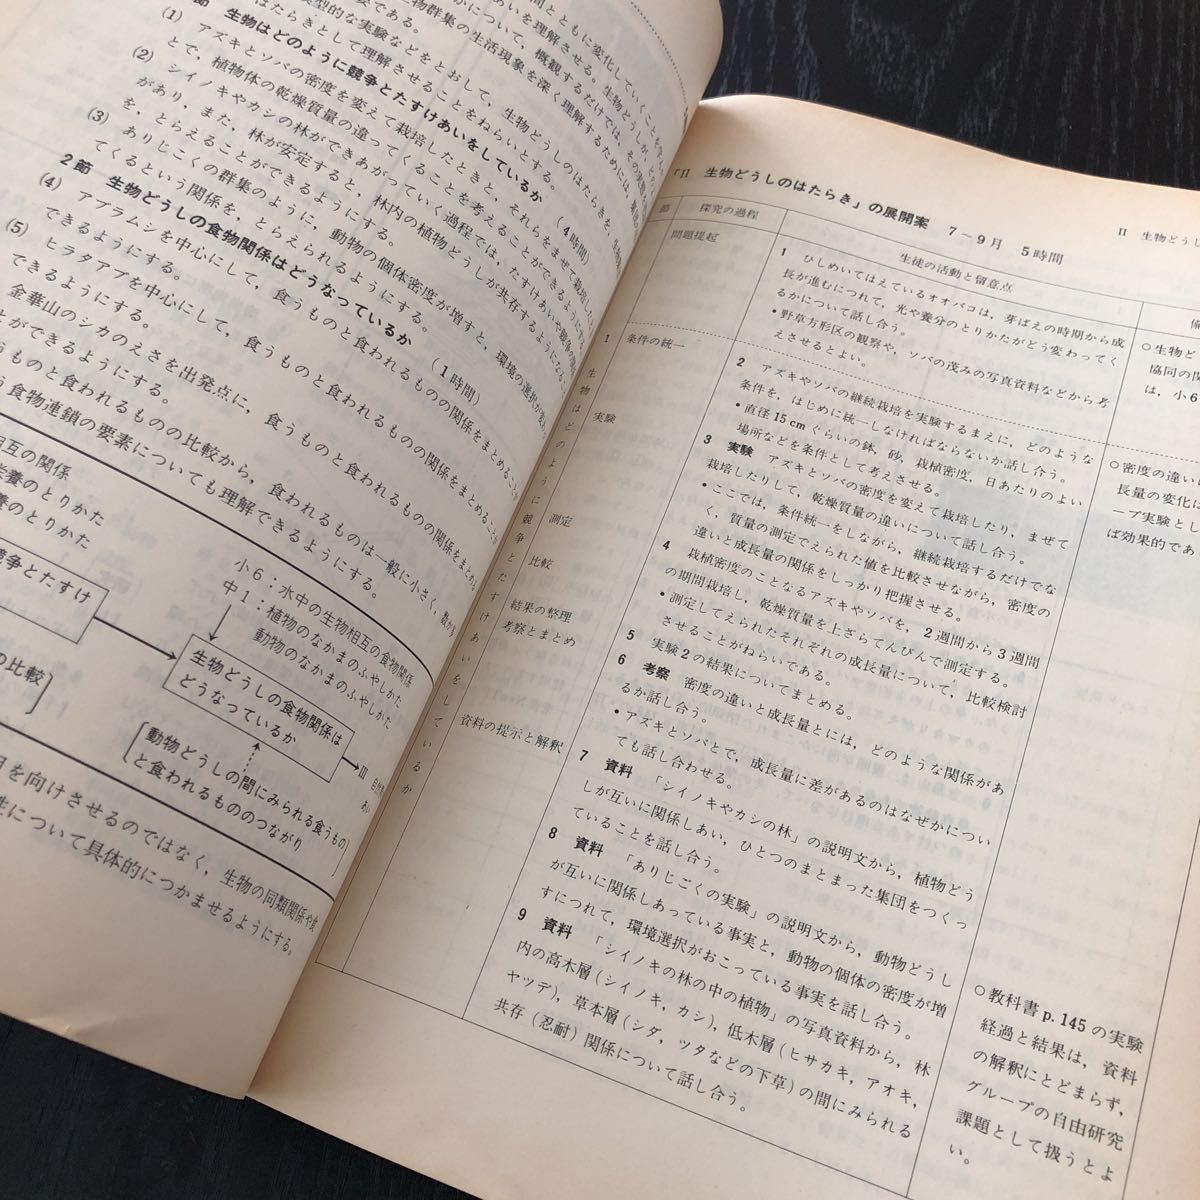 間とともに変化していくことを学
あいを理解させる。生物どうしが、どのよ
物群集の生活現象を深く理解するためには、集団の
はたらきについて、概観するだけでは、その実態を
要である。
典型的な実験などをとおして、生物どうしのはたらきを、生物
はたらきとして理解させることをねらいとする。
節 生物はどのように競争とたすけあいをしているか (4時間)
(1) アズキとソバの密度を変えて栽培したときと、それらをまぜて栽培し
とで、植物体の乾燥質量の違ってくることを考えることができるようにする
(2) シイノキやカシの林ができあがっていく過程では、たすけあいや競争の関係
があり、また、林が安定すると、林内の植物どうしが共存するようになること
を、とらえることができるようにする。
(3) ありじごくの群集のように、動物の個体密度が増すと、環境の選択が変え
てくるという関係を、とらえられるようにする。
2節 生物どうしの食物関係はどうなっているか (1時間)
(4) アブラムシを中心にして、食うものと食われるものの関係をまとめること
できるようにする。
(5) ヒラタアブを中心にして、食うものと食われるものの関係をまとめること
できるようにする。
金華山のシカのえさを出発点に、食うものと食われるものの関係をまとめ
とができるようにする。
うものと食われるものの比較から、食われるものは一般に小さく、数が多
う食物連鎖の要素についても理解できるようにする。
相互の関係
栄養のとりかた
養のとりかた
小6:水中の生物相互の食物関係
中1:植物のなかまのふやしかた
動物のなかまのふやしかた
競争とたすけ
生物どうしの食物関係は
どうなっているか
の比較
動物どうしの間にみられる食うもの
と食われるもののつながり
III
目を向けさせるのではなく、生物の同類関係や食
性について具体的につかませるようにする。
「II 生物どうしのはたらき」の展開案 7〜9月 5時間
II 生物どうし
節
探究の過程
生徒の活動と留意点
備
問題提起
1 ひしめいてはえているオオバコは、芽ばえの時期から成
長が進むにつれて、光や養分のとりかたがどう変わってく
るかについて話し合う。
•野草方形区の観察や、ソバの茂みの写真資料などから考
えさせるとよい。
○生物ど
協同の関
は、小6
1 生物はどのように競争とたすけあいをしているか
条件の統一
2 アズキやソバの継続栽培を実験するまえに、どのような
条件を、はじめに統一しなければならないか話し合う。
•直径15cmぐらいの鉢、砂、栽植密度、日あたりのよい
場所などを条件として考えさせる。
実験
3 実験 アズキとソバの密度を変えて栽培したり、まぜて
栽培したりして、乾燥質量の違いについて話し合う。
•ここでは、条件統一をしながら、継続栽培するだけでな
く、質量の測定でえられた値を比較させながら、密度の
違いと成長量の関係をしっかり把握させる。
○密度の違い
長量の変化に
ープ実験とし
ば効果的であ
測定
4 栽植密度のことなるアズキやソバを、2週間から3週間
の期間栽培し、乾燥質量を上ざらてんびんで測定する。
比較
•測定してえられたそれぞれの成長量について、比較検討
させることがねらいである。
結果の整理
5 実験2の結果についてまとめる。
考察とまとめ
6 考察 密度の違いと成長量とには、どのような関係があ
るか話し合う。
•アズキとソバとで、成長量に差があるのはなぜかについ
ても話し合わせる。
資料の提示と解釈
7 資料 「シイノキやカシの林」の説明文から、植物どう
しが互いに関係しあい、ひとつのまとまった集団をつくっ
ていることを話し合う。
8 資料 「ありじごくの実験」の説明文から、動物どうし
が互いに関係しあっている事実と、動物の個体の密度が増
すにつれて、環境選択がおこっている事実を話し合う。
9 資料 「シイノキの林の中の植物」の写真資料から、林
内の高木層(シイノキ、カシ)、低木層(ヒサカキ、アオキ、
ヤツデ)、草本層(シダ、ツタなどの下草)の間にみられる
共存(忍耐)関係について話し合う。
○教科書p.145の実験
経過と結果は、資料
の解釈にとどまらず、
グループの自由研究
課題として扱うとよ
い。